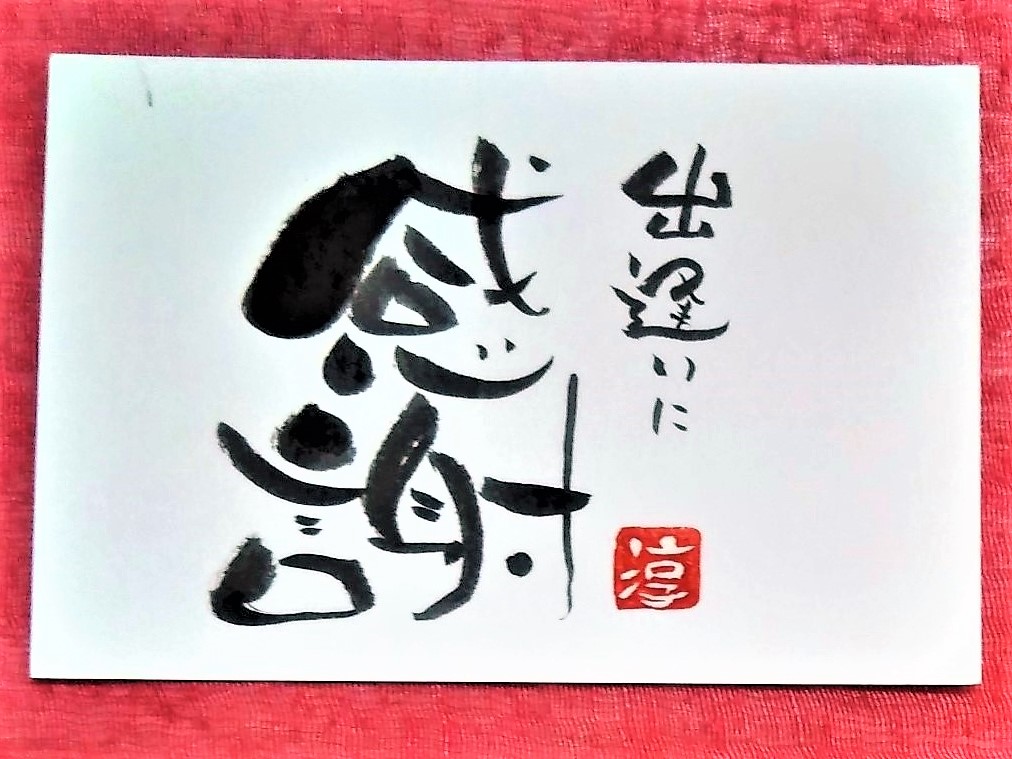 出逢いに
感謝
淳